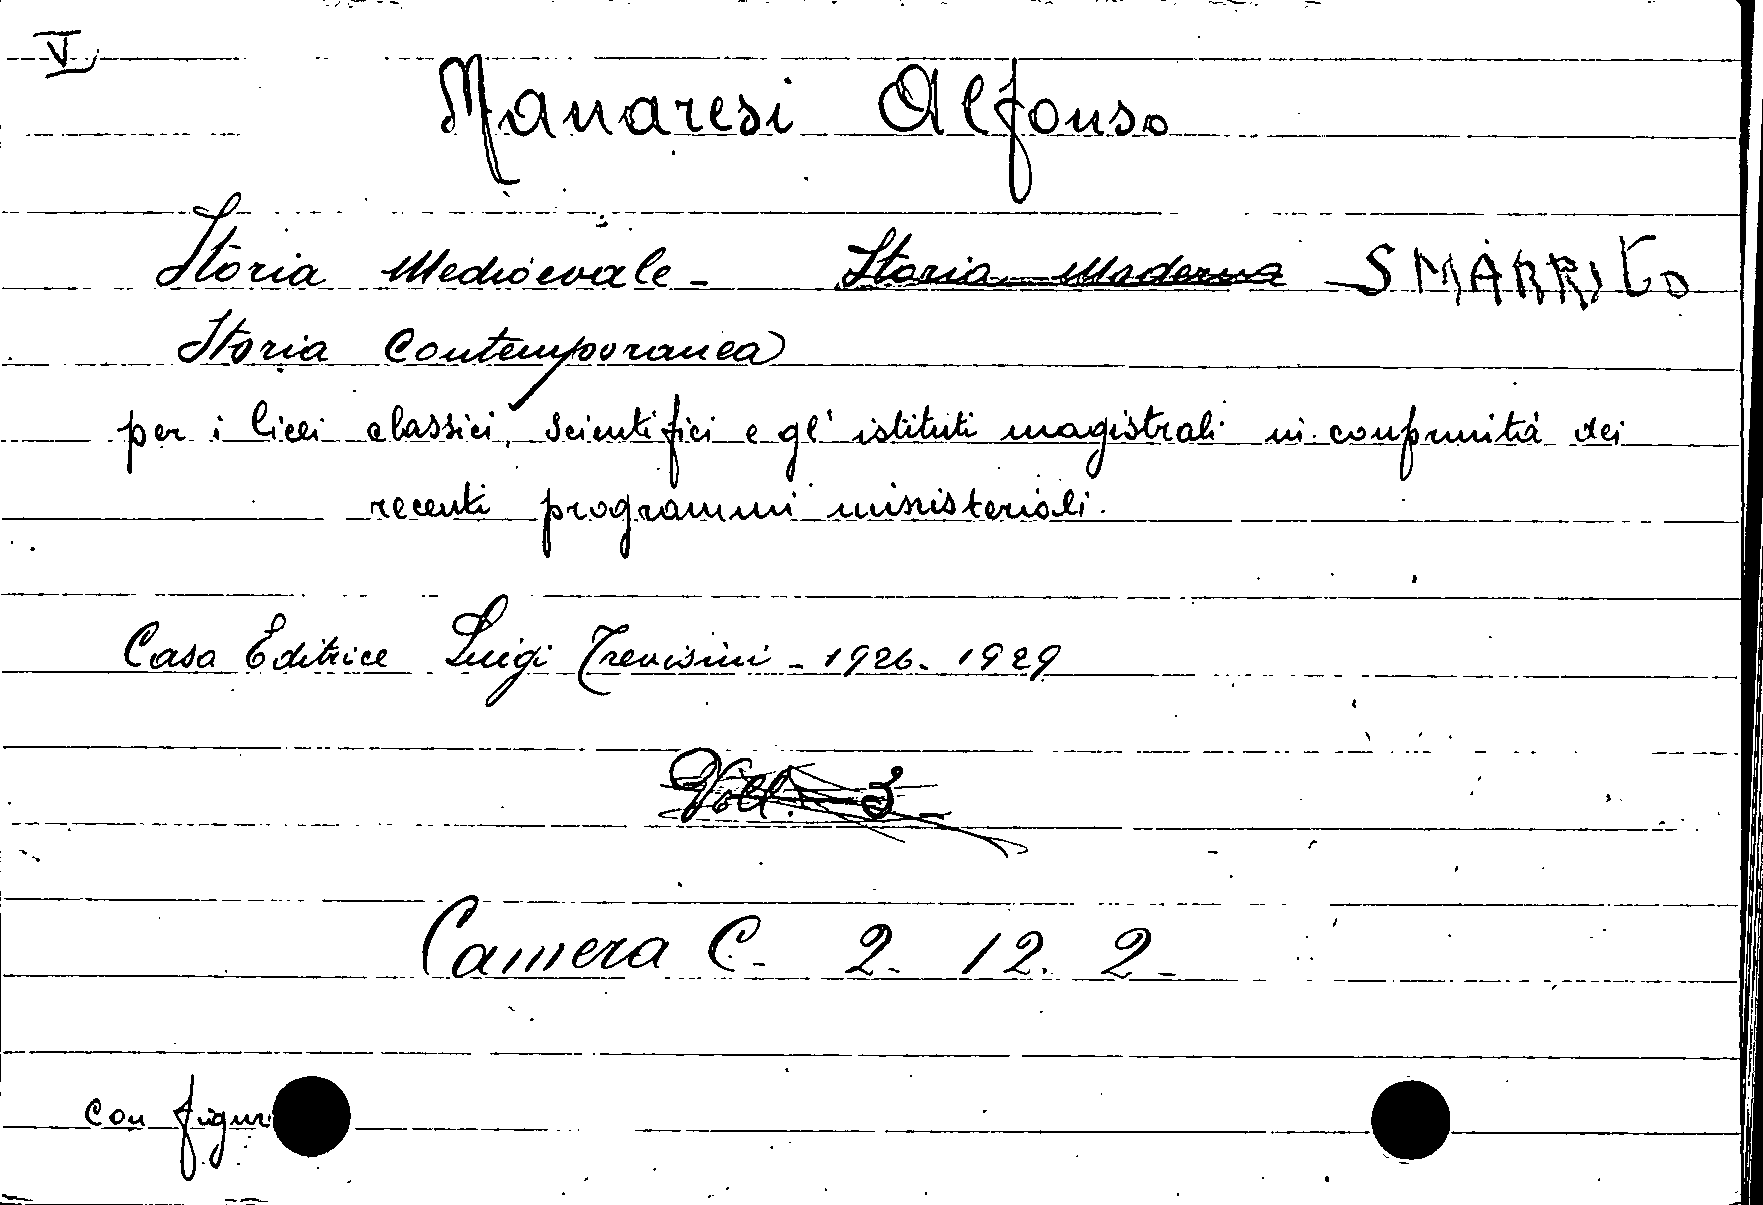 V
Manaresi Alfonso
Storia Medioevale - Storia Moderna SMARRITO
Storia Contemporanea
per i licei classici, scientifici e gl' istituti magistrali in conformità dei
recenti programmi ministeriali.
Casa Editrice Luigi Trevisini - 1926 - 1929
Voll. 3
Camera C. 2. 12. 2.
con figur